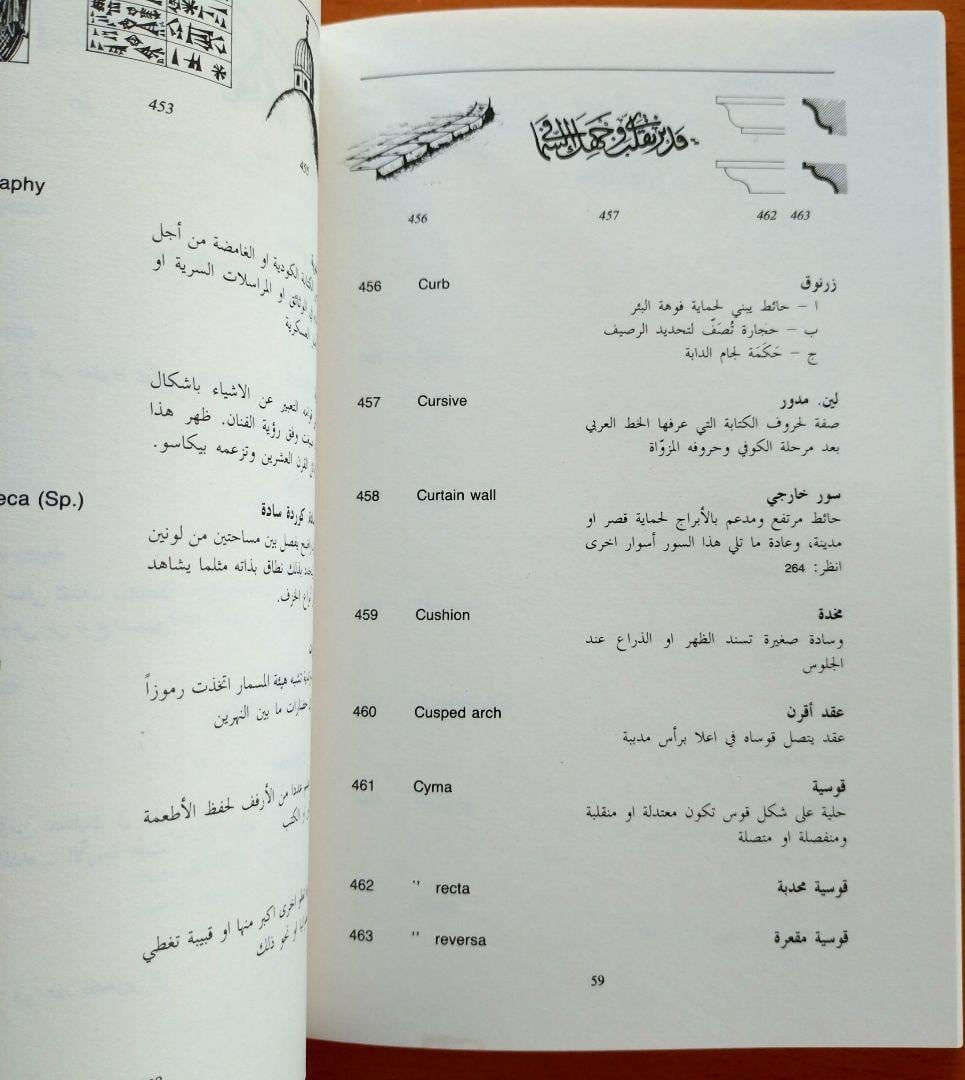 453
aphy
الكتابة الكودية او الغامضة من أجل
الوثائق او المراسلات السرية او
العسكرية
التعبير عن الاشياء باشكال
وفق رؤية الفنان. ظهر هذا
القرن العشرين وتزعمه بيكاسو.
eca (Sp.)
كوردة سادة
يفصل بين مساحتين من لونين
بذلك نطاق بذاته مثلما يشاهد
الخزف.
تشبه هيئة المسمار اتخذت رموزاً
حضارات ما بين النهرين
من الأرفف لحفظ الأطعمة
الكتب
اخرى اكبر منها او قبيبة تغطي
نحو ذلك
قد نرى تقلب وجهك في السماء
456
457
462 463
456 Curb زرنوق
ا – حائط يبني لحماية فوهة البئر
ب – حجارة تُصَفّ لتحديد الرصيف
ج – حَكَمَة لجام الدابة
457 Cursive لين. مدور
صفة لحروف الكتابة التي عرفها الخط العربي
بعد مرحلة الكوفي وحروفه المزوّاة
458 Curtain wall سور خارجي
حائط مرتفع ومدعم بالأبراج لحماية قصر او
مدينة، وعادة ما تلي هذا السور أسوار اخرى
انظر: 264
459 Cushion مخدة
وسادة صغيرة تسند الظهر او الذراع عند
الجلوس
460 Cusped arch عقد أقرن
عقد يتصل قوساه في اعلا برأس مدببة
461 Cyma قوسية
حلية على شكل قوس تكون معتدلة او منقلبة
ومنفصلة او متصلة
462 " recta قوسية محدبة
463 " reversa قوسية مقعرة
59